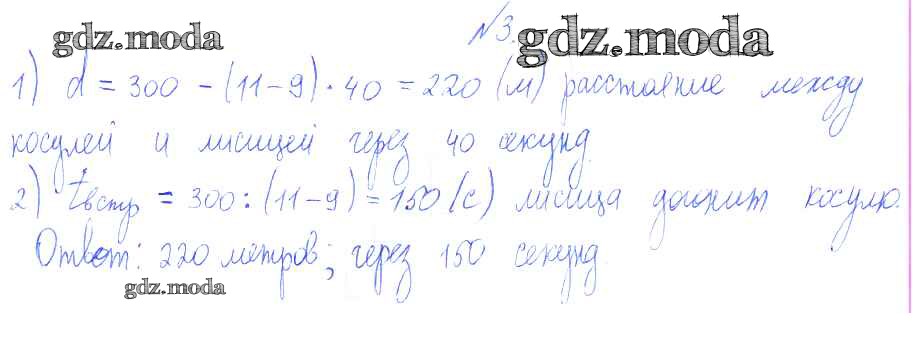 №3.
gdz.moda gdz.moda
1) d = 300 - (11-9) · 40 = 220 (м) расстояние между
косулей и лисицей через 40 секунд.
2) tвстр = 300 : (11-9) = 150 (с) лисица догонит косулю.
Ответ: 220 метров; через 150 секунд.
gdz.moda